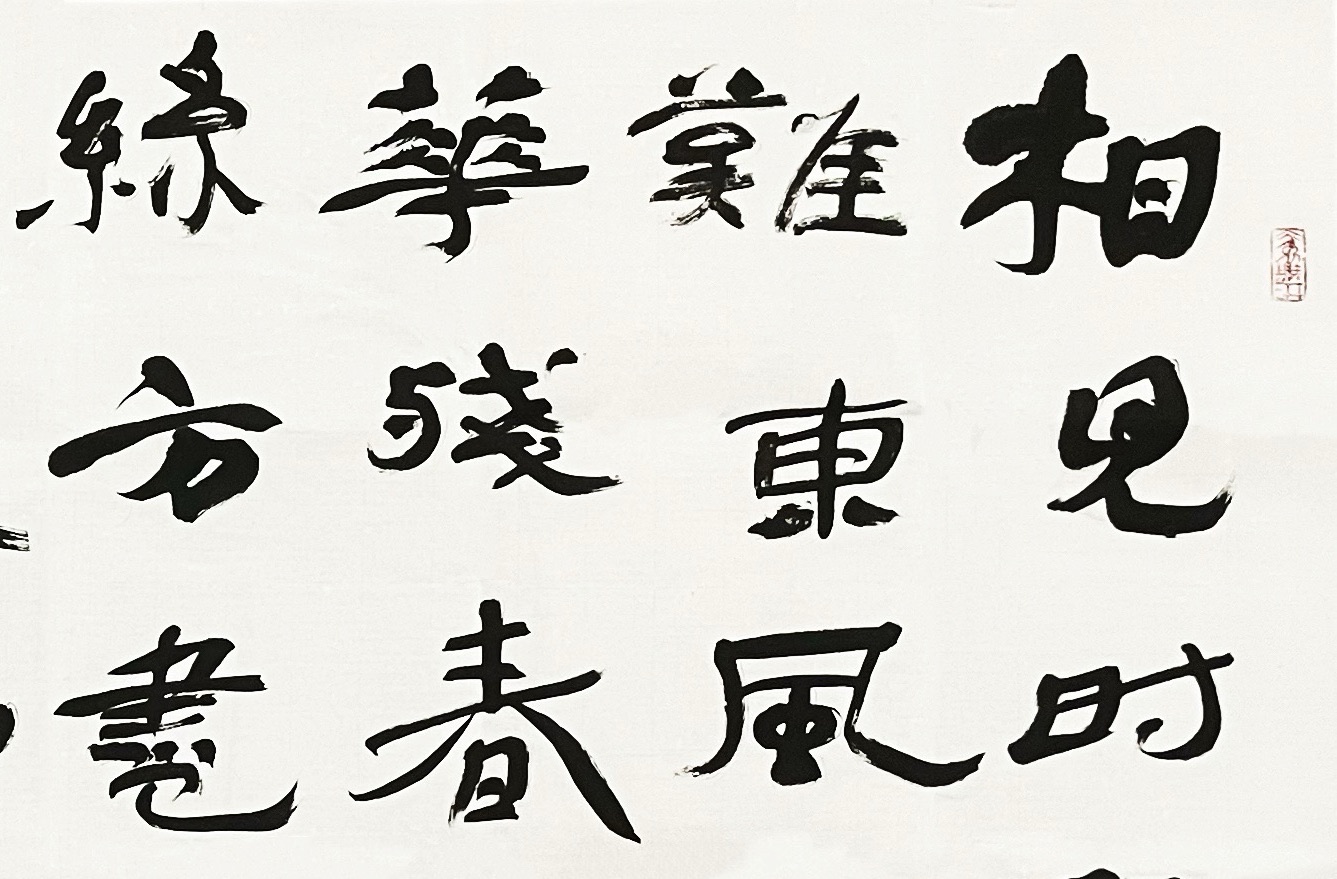 相見时
難東風
華殘春
絲方盡